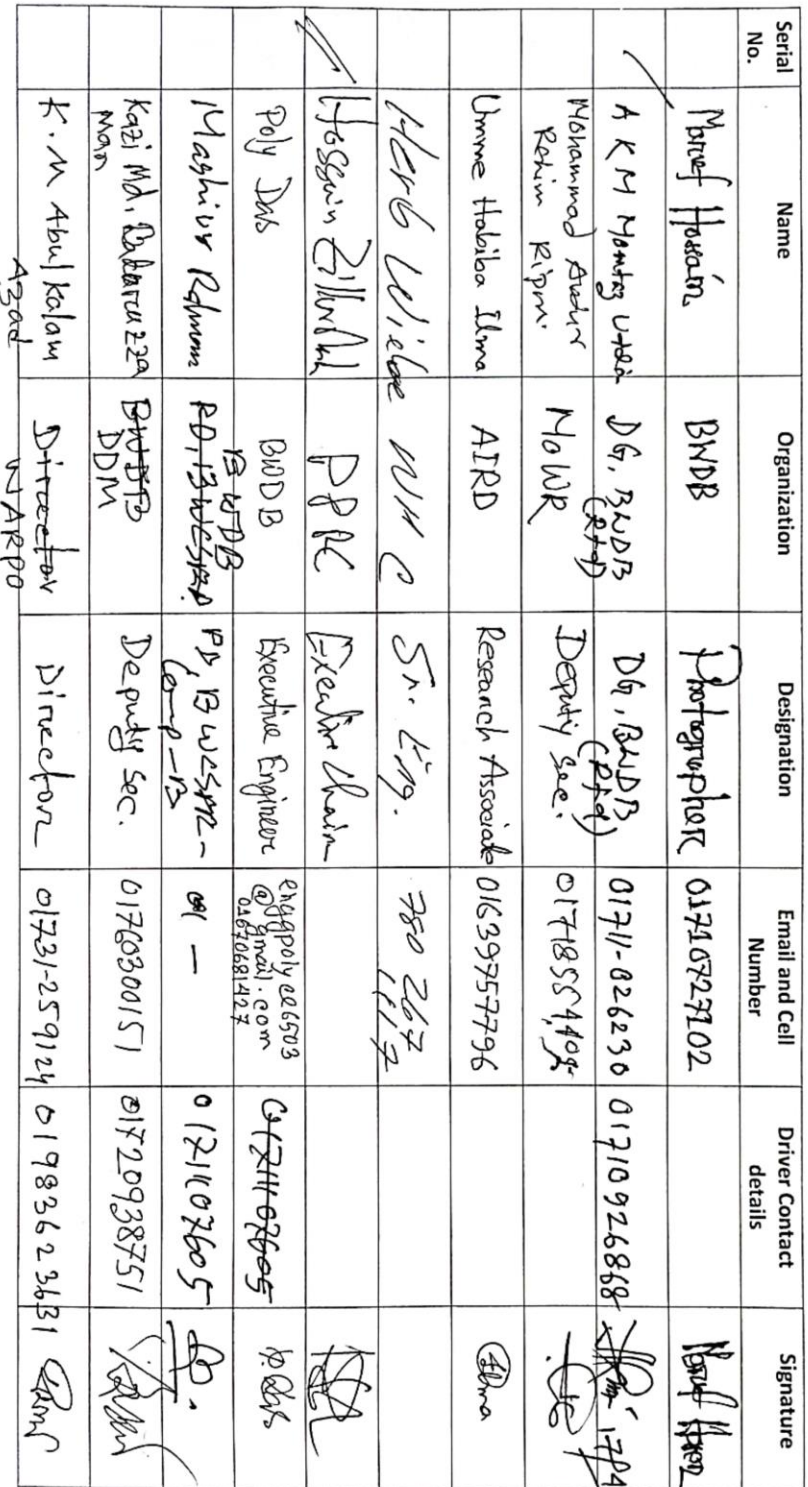 Serial No. Name Organization Designation Email and Cell Number Driver Contact details Signature
Maruf Hossain BWDB Photographer 01710727102
A K M Momtaz Uddin DG, BWDB (Rtd) DG, BWDB (Rtd) 01711-026230 01710926868
Mohammad Rahim Ripon. MoWR Deputy Sec.
Umme Habiba Ilma AIRD Research Associate 01639757796 Ilma
Herb Wiebe Sr. Eng. 780 267 1117
Hossain Zillur PPRC Executive Chair
Poly Das BWDB Executive Engineer enggpolyce6503@gmail.com 01670681427 01711107605 P. Das
Mashiur Rahman BWDB 01711107605
Kazi Md. man BWDB DDM Deputy Sec. 01760300151 01720938751
K. M Abul Kalam Azad Director WARPO Director 01731-259124 01983623631